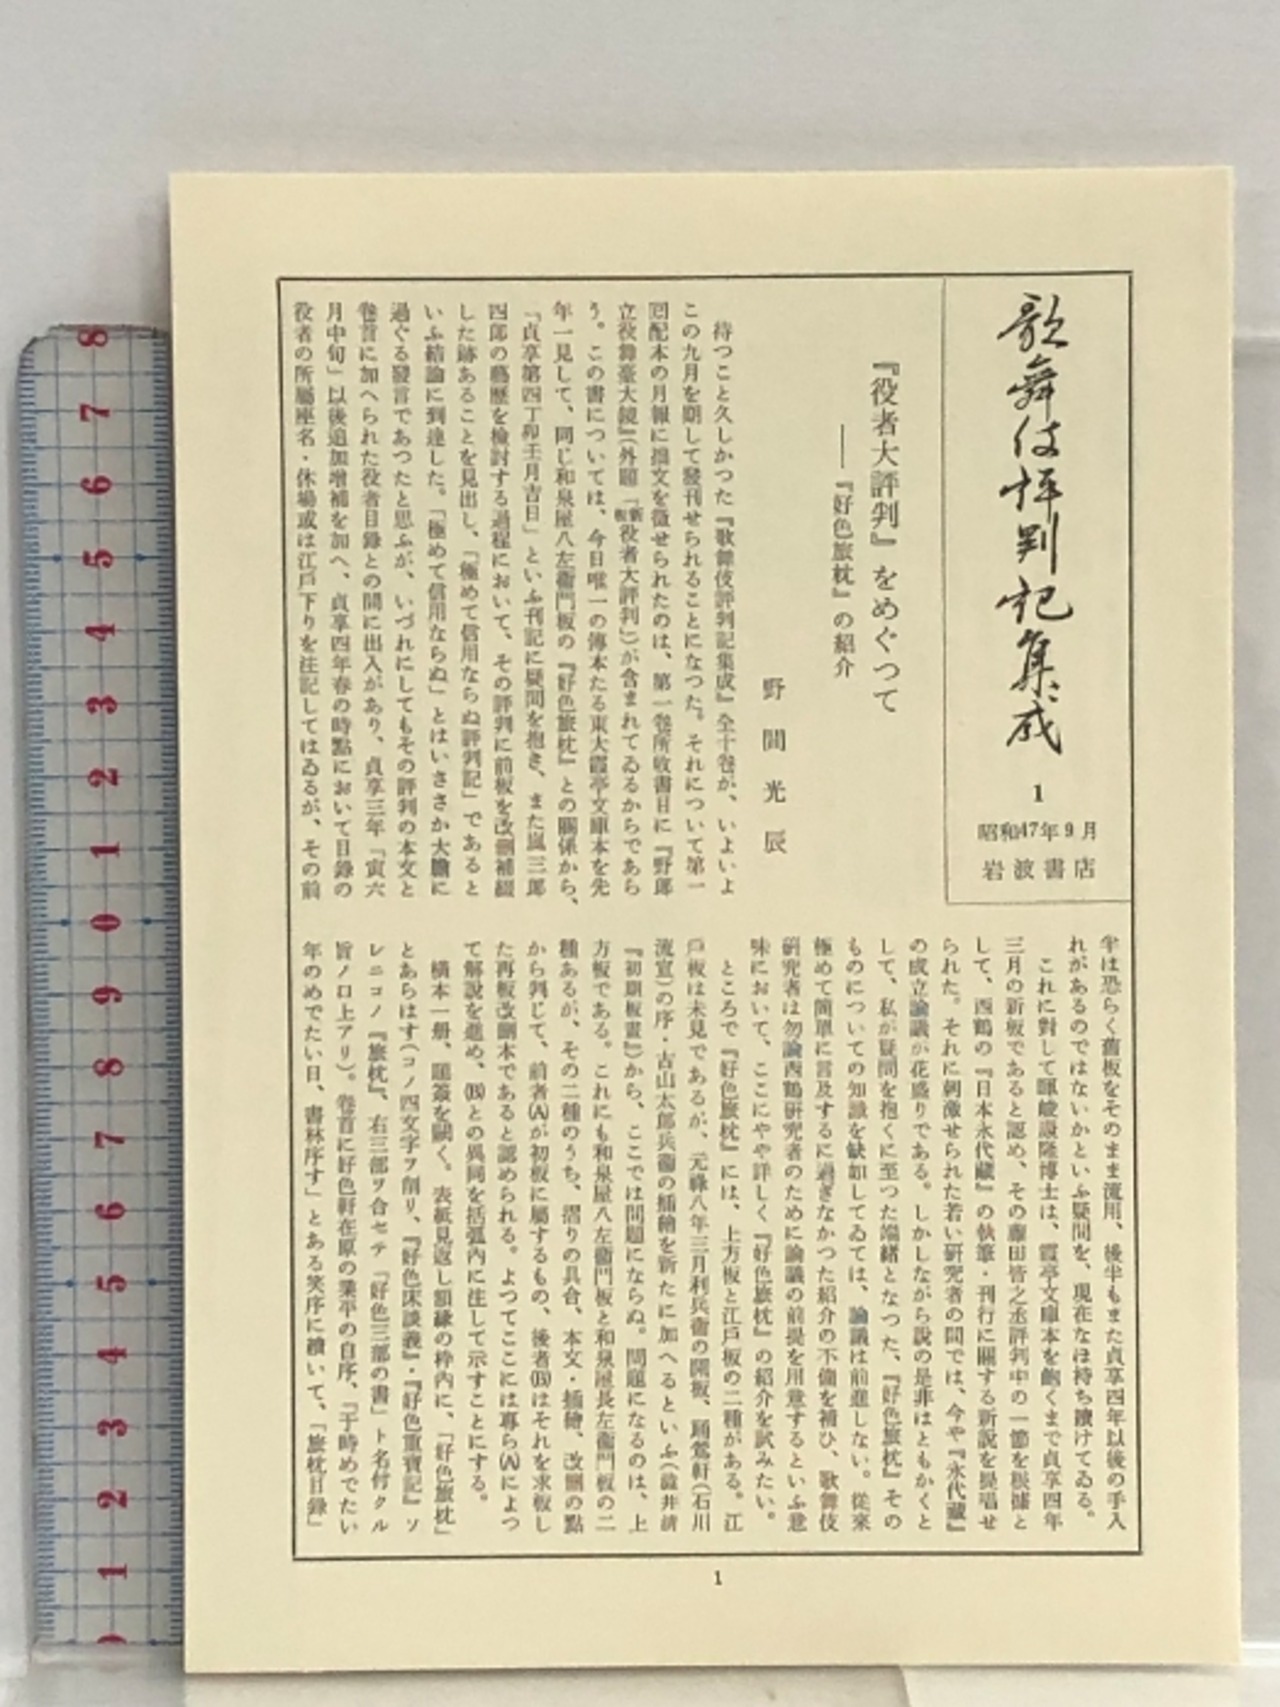 歌舞伎評判記集成
1
昭和47年9月
岩波書店
『役者大評判』をめぐつて
──『好色旅枕』の紹介
野間光辰
待つこと久しかつた『歌舞伎評判記集成』全十巻が、いよいよ
この九月を期して發刊せられることになつた。それについて第一
回配本の月報に拙文を徴せられたのは、第一巻所收書目に『野郎
立役舞臺大鏡』(外題「新板役者大評判」)が含まれてゐるからであら
う。この書については、今日唯一の傳本たる東大霞亭文庫本を先
年一見して、同じ和泉屋八左衞門板の『好色旅枕』との關係から、
「貞享第四丁卯壬月吉日」といふ刊記に疑問を抱き、また嵐三郎
四郎の藝歷を檢討する過程において、その評判に前板を改刪補綴
した跡あることを見出し、「極めて信用ならぬ評判記」であると
いふ結論に到達した。「極めて信用ならぬ」とはいささか大膽に
過ぐる發言であつたと思ふが、いづれにしてもその評判の本文と
卷首に加へられた役者目錄との間に出入があり、貞享三年「寅六
月中旬」以後追加增補を加へ、貞享四年春の時點において目錄の
役者の所屬座名・休場或は江戶下りを注記してはゐるが、その前
半は恐らく舊板をそのまま流用、後半もまた貞享四年以後の手入
れがあるのではないかといふ疑問を、現在なほ持ち續けてゐる。
これに對して暉峻康隆博士は、霞亭文庫本を飽くまで貞享四年
三月の新板であると認め、その藤田皆之丞評判中の一節を根據と
して、西鶴の『日本永代藏』の執筆・刊行に關する新說を提唱せ
られた。それに刺激せられた若い硏究者の間では、今や『永代藏』
の成立論議が花盛りである。しかしながら說の是非はともかくと
して、私が疑問を抱くに至つた端緒となつた、『好色旅枕』その
ものについての知識を缺如してゐては、論議は前進しない。從來
極めて簡單に言及するに過ぎなかつた紹介の不備を補ひ、歌舞伎
硏究者は勿論西鶴硏究者のために論議の前提を用意するといふ意
味において、ここにやや詳しく『好色旅枕』の紹介を試みたい。
ところで『好色旅枕』には、上方板と江戶板の二種がある。江
戶板は未見であるが、元祿八年三月利兵衞の開板、踊鶯軒(石川
流宣)の序・古山太郎兵衞の插繪を新たに加へるといふ(澁井淸
『初期板畫』)から、ここでは問題にならぬ。問題になるのは、上
方板である。これにも和泉屋八左衞門板と和泉屋長左衞門板の二
種あるが、その二種のうち、摺りの具合、本文・插繪、改刪の點
から判じて、前者(A)が初板に屬するもの、後者(B)はそれを求板し
た再板改刪本であると認められる。よつてここには專ら(A)によつ
て解說を進め、(B)との異同を括弧內に注して示すことにする。
橫本一册、題簽を闕く。表紙見返し額緣の枠內に、「好色旅枕」
とあらはす(コノ四文字ヲ削リ、『好色床談義』・『好色重寶記』ソ
レニコノ『旅枕』、右三部ヲ合セテ「好色三部の書」ト名付クル
旨ノ口上アリ)。卷首に好色軒在原の業平の自序、「于時めでたい
年のめでたい日、書林序す」とある笑序に續いて、「旅枕目錄」
1